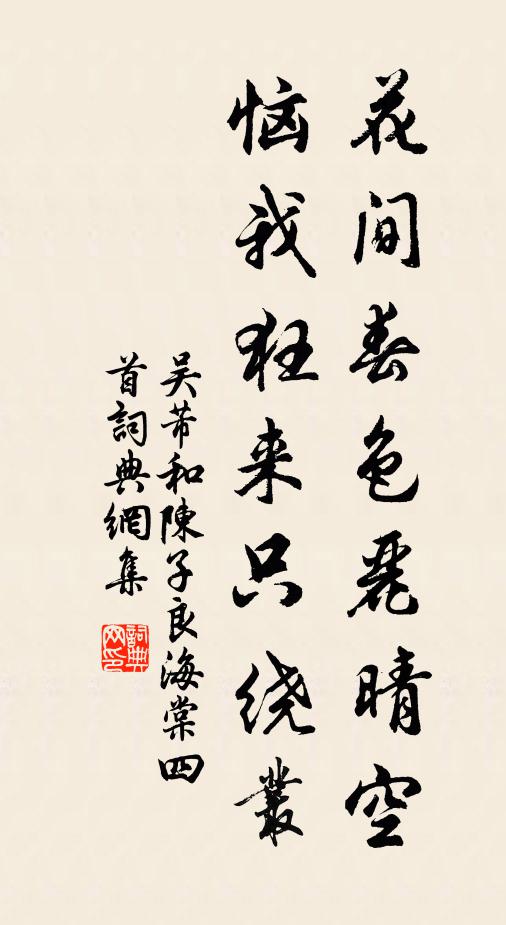 花间春色丽晴空
恼我狂来只绕叢
吴芾和陳子良海棠四
首詞典網集
詞典
网印